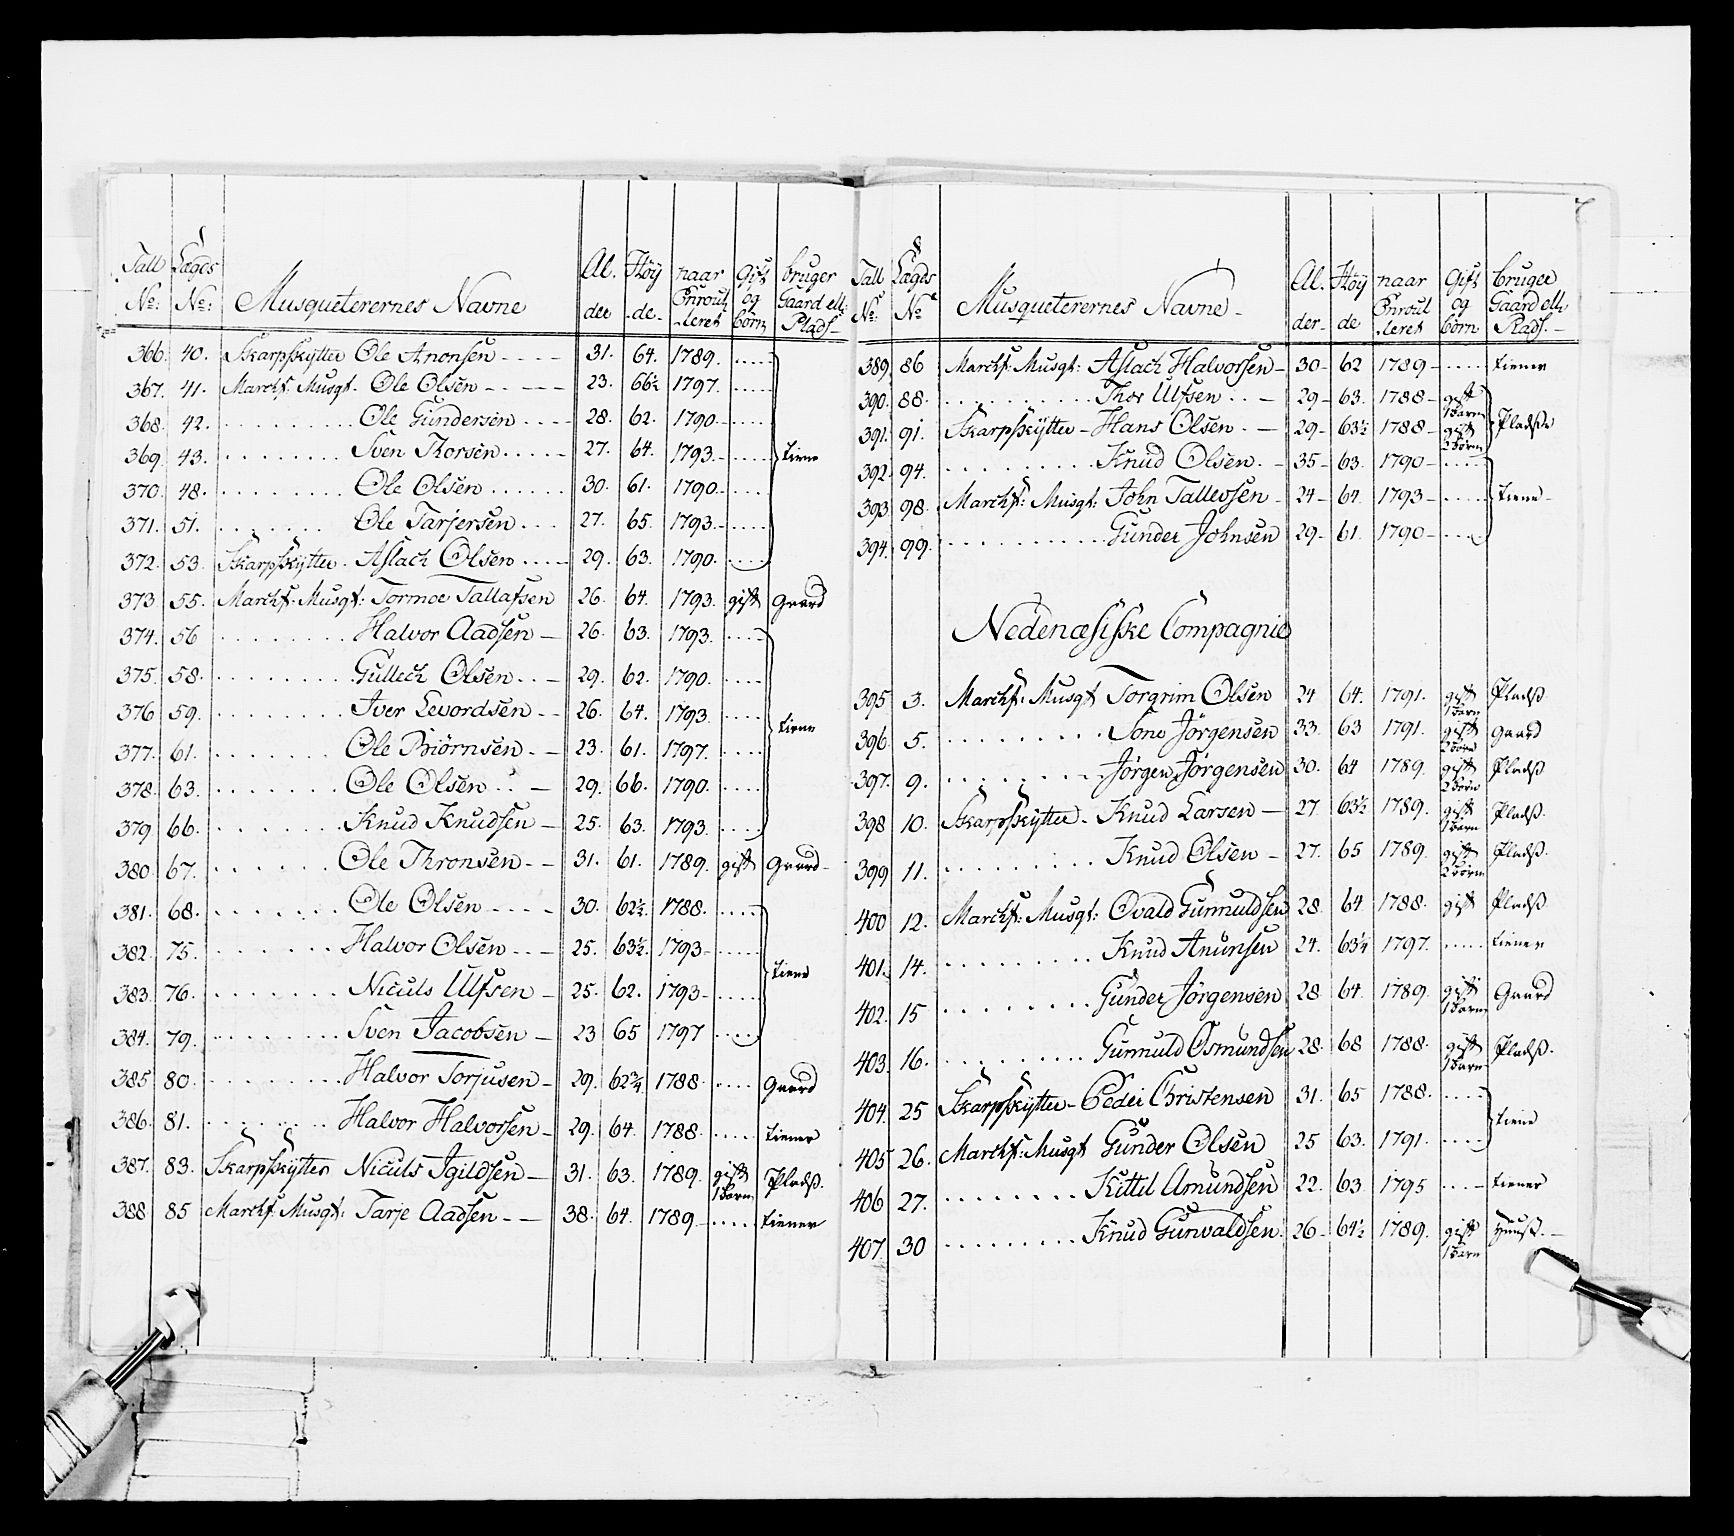 Tall No: Lægds No: Musqueterernes Navne Al. der Høy de naar Enroulleret Gift og børn bruger Gaard ell: Plads
366. 40. Skarpskytter Ole Anonsen 31. 64. 1789.
367. 41. Marchs: Musqt. Ole Olsen 23. 66½ 1797.
368. 42. Ole Gundersen 28. 62. 1790.
369. 43. Sven Thorsen 27. 64. 1793. tiene
370. 48. Ole Olsen 30. 61. 1790.
371. 51. Ole Tarjersen 27. 65. 1793.
372. 53. Skarpskytter Aslach Olsen 29. 63. 1790.
373 55. Marchs: Musqt: Tormoe Tallafsen 26. 64. 1793. gift Gaard
374. 56 Halvor Aadsen 26. 63. 1793.
375. 58. Gullech Olsen 29. 62. 1790.
376 59. Iver Levordsen 26. 64. 1793. tiene
377. 61. Ole Biørnsen 23. 61. 1797.
378. 63. Ole Olsen 29. 66. 1790.
379 66. Knud Knudsen 25. 63. 1793.
380. 67. Ole Thronsen 31. 61. 1789. gift Gaard
381. 68. Ole Olsen 30. 62½ 1788.
382. 75. Halvor Olsen 25. 63½ 1793
383. 76. Niculs Ulfsen 25. 62. 1793 tiene
384. 79. Sven Jacobsen 23 65 1797
385 80. Halvor Torjusen 29. 62¾ 1788 Gaard
386. 81. Halvor Halvorsen 29. 64. 1788. tiener
387. 83. Skarpskytter Niculs Igildsen 31. 63. 1789. gift 1 Barn Pladß.
388 85 Marchs: Musqt: Tarje Aadsen 38. 64. 1789 tiener
Tall No: Lægds No Musqueterernes Navne Al. der Høy de naar Enroulleret Gift og børn bruger Gaard ell: Plads.
389. 86 Marchs: Musqt: Aslach Halvorsen 30 62 1789 tiener
390. 88. Thor Ulfsen 29 63. 1788 gift 1 Barn
391. 91. Skarpskytter Hans Olsen 29 63½ 1788 gift 2 Børn Pladße
392. 94. Knud Olsen 35 63. 1790
393 98. Marchs: Musqt: John Tallevsen 24 64. 1793 tiene
394. 99. Gunder Johnsen 29 61. 1790
Nedenæsiske Compagnie
395 3. Marchs: Musqt Torgrim Olsen 24 64. 1791. gift 1 Barn Pladß
396. 5. Sone Jørgensen 33. 63 1791. gift 2 Børn Gaard
397. 9. Jørgen Jørgensen 30. 64 1789. gift 2 Børn Pladß
398 10. Skarpskytter Knud Larsen 27 63½ 1789. gift 1 Barn Pladß.
399 11. Knud Olsen 27. 65 1789. gift 2 Børn Pladß.
400 12. Marchs: Musqt: Ovald Gurmuldsen 28 64 1788. gift Pladß
401. 14. Knud Anunsen 24. 63¼ 1797. tiener
402. 15 Gunder Jørgensen 28 64. 1789 gift 1 Barn Gaard
403. 16. Gurmuld Osmundsen 28. 68 1788. gift 1 Barn Pladß.
404. 25 Skarpskytter Peder Christensen 31. 65 1788. tiene
405 26. Marchs: Musqt Gunder Olsen 25 63. 1791.
406 27. Kittil Amundsen 22. 63. 1795 tiener
407. 30 Knud Gunvaldsen 26 64½ 1789. gift 1 Barn Huuß.